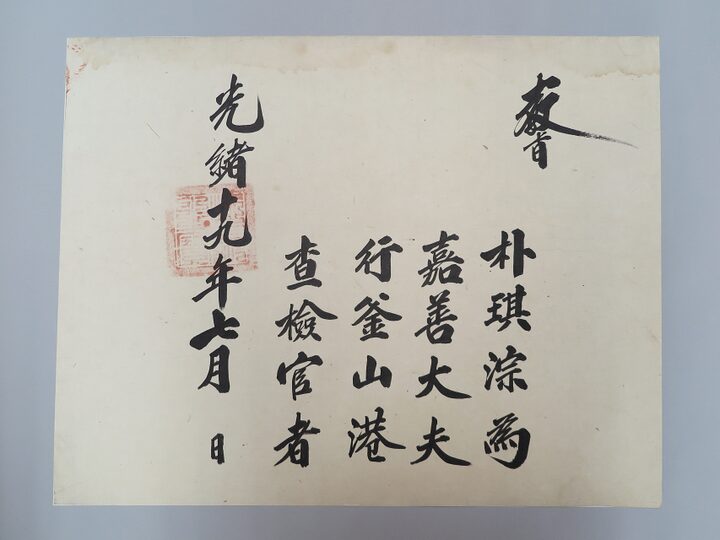 敎旨
朴琪淙為
嘉善大夫
行釜山港
查檢官者
光緒十九年七月 日